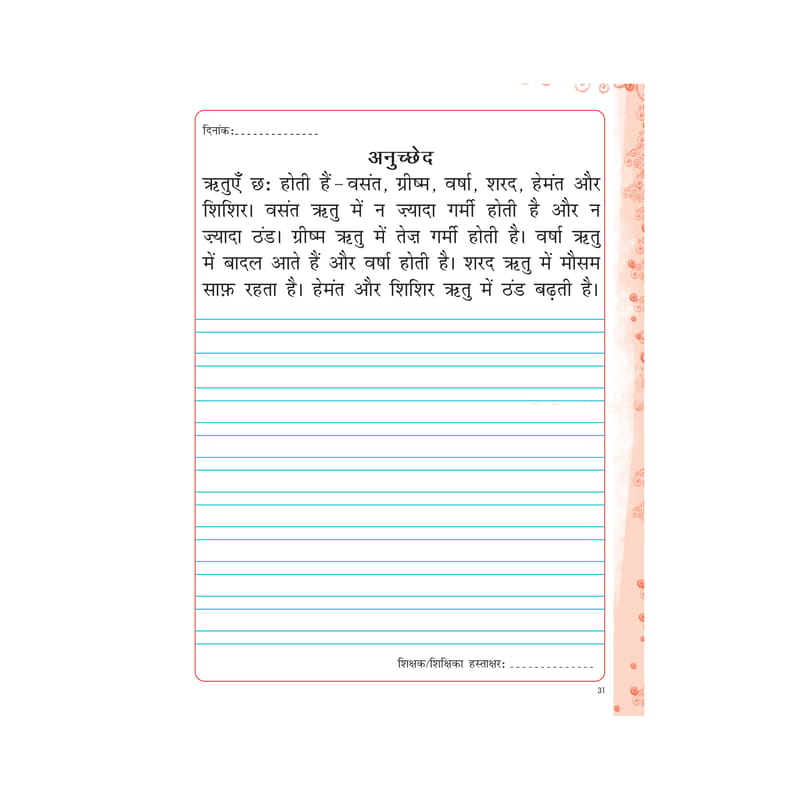 दिनांक:_ _ _ _ _ _ _ _ _ _ _ _ _ _
अनुच्छेद
ऋतुएँ छः होती हैं – वसंत, ग्रीष्म, वर्षा, शरद, हेमंत और
शिशिर। वसंत ऋतु में न ज़्यादा गर्मी होती है और न
ज़्यादा ठंड। ग्रीष्म ऋतु में तेज़ गर्मी होती है। वर्षा ऋतु
में बादल आते हैं और वर्षा होती है। शरद ऋतु में मौसम
साफ़ रहता है। हेमंत और शिशिर ऋतु में ठंड बढ़ती है।
शिक्षक/शिक्षिका हस्ताक्षर: _ _ _ _ _ _ _ _ _ _ _ _ _ _
31